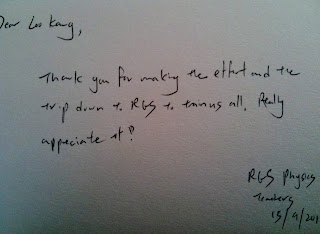 Dear Loo Kang,
Thank you for making the effort and the
trip down to RGS to train us all. Really
appreciate it!
RGS Physics
Teachers
15/9/201